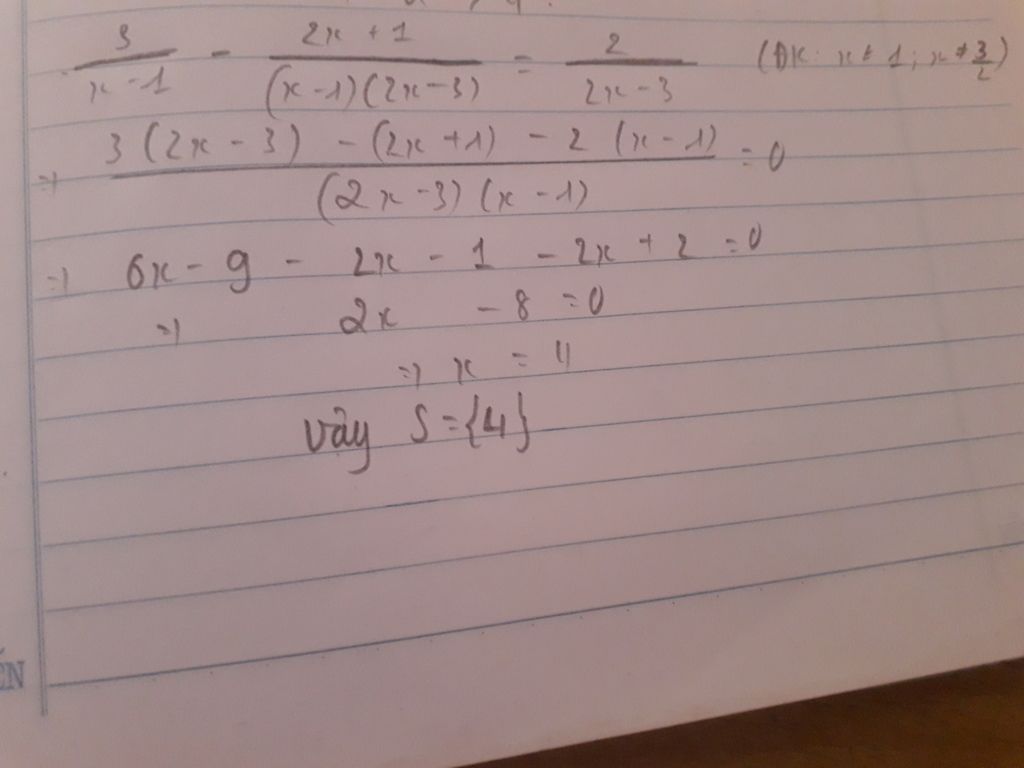 3/(x-1) - (2x+1)/((x-1)(2x-3)) = 2/(2x-3) (ĐK: x ≠ 1; x ≠ 3/2)
=> (3(2x-3) - (2x+1) - 2(x-1))/((2x-3)(x-1)) = 0
=> 6x - 9 - 2x - 1 - 2x + 2 = 0
=> 2x - 8 = 0
=> x = 4
Vậy S = {4}
ẾN